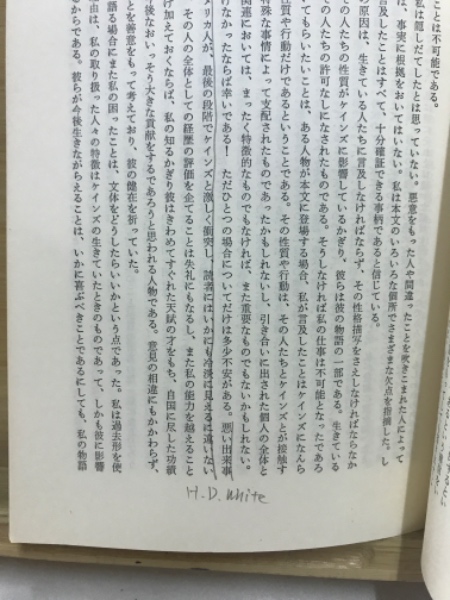 ことは不可能である。
私は隠しだてしたとは思っていない。悪意をもった人や間違ったことを吹きこまれた人によって
は、事実に根拠をおいてはいない。私は本文のいろいろな個所でさまざまな欠点を指摘した。し
言及したことはすべて、十分確証できる事柄であると信じている。
の原因は、生きている人たちに言及しなければならず、その性格描写をさえしなければならなか
の人たちの性質がケインズに影響しているかぎり、彼らは彼の物語の一部である。生きている
その人たちの許可なしになされたものである。そうしなければ私の仕事は不可能となったであろ
てもらいたいことは、ある人物が本文に登場する場合、私が言及したことはケインズになんら
性質や行動だけであるということである。その性質や行動は、その人たちとケインズとが接触す
特殊な事情によって支配されたものであったかもしれないし、引き合いに出された個人の全体と
関連においては、まったく特徴的なものでもなければ、また重要なものでもないかもしれない。
けなかったならば幸いである！ ただひとつの場合についてだけは多少不安がある。悪い出来事
メリカ人が、最後の段階でケインズと激しく衝突し、読者にはいかにも冷淡に見えるに違いない
その人の全体としての経歴の評価を企てることは失礼にもなるし、また私の能力を越えること
け加えておくならば、私の知るかぎり彼はきわめてすぐれた天賦の才をもち、自国に尽した功績
後なおいっそう大きな貢献をするであろうと思われる人物である。意見の相違にもかかわらず、
とを善意をもって考えており、彼の健在を祈っていた。
語る場合にまた私の困ったことは、文体をどうしたらいいかという点であった。私は過去形を使
由は、私の取り扱った人々の特徴はケインズの生きていたときのものであって、しかも彼に影響
るからである。彼らが今後生きながらえることは、いかに喜ぶべきことであるにしても、私の物語
H.D. White